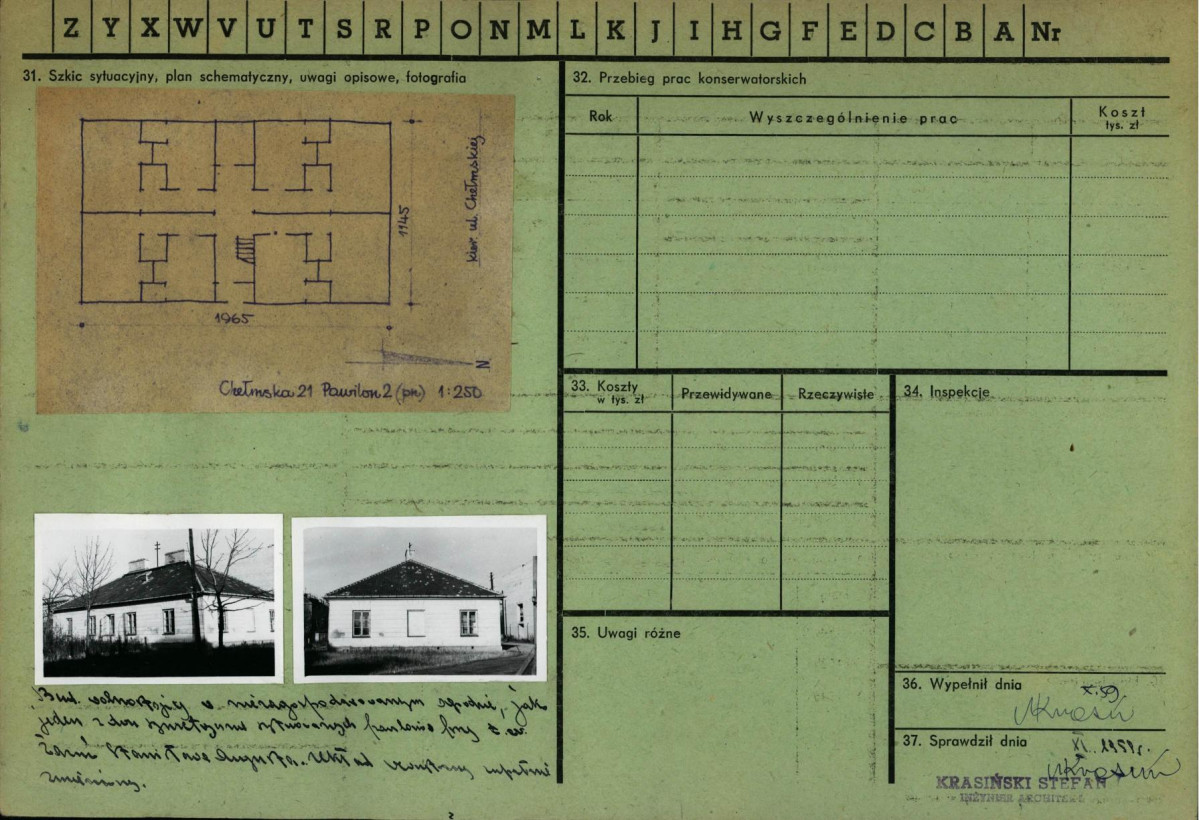 Z Y X W V U T S R P O N M L K J I H G F E D C B A Nr
31. Szkic sytuacyjny, plan schematyczny, uwagi opisowe, fotografia
kier. ul. Chełmskiej
1145
1965
N
Chełmska 21 Pawilon 2 (pn) 1:250
Bud. wolnostojący w niezagospodarowanym ogrodzie, jak
jeden z dwu
Stanisława Augusta. Układ
zmieniony.
32. Przebieg prac konserwatorskich
Rok Wyszczególnienie prac Koszt
tys. zł
33. Koszty
w tys. zł
Przewidywane Rzeczywiste
34. Inspekcje
35. Uwagi różne
36. Wypełnił dnia
X.59
37. Sprawdził dnia
XI. 1959 r.
KRASIŃSKI STEFAN
INŻYNIER ARCHITEKT